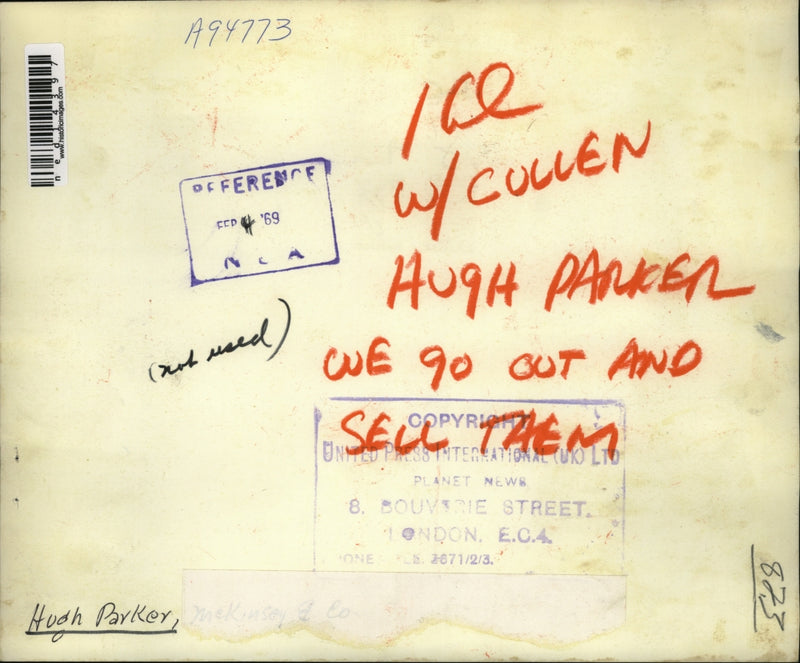 A94773
ned14397
www.historicimages.com
1 Col
W/ CULLEN
HUGH PARKER
WE GO OUT AND
SELL THEM
REFERENCE
FEB 4 '69
N E A
(not used)
COPYRIGHT
UNITED PRESS INTERNATIONAL (UK) LTD
PLANET NEWS
8. BOUVERIE STREET.
LONDON. E.C.4.
2671/2/3.
Hugh Parker, McKinsey & Co
823